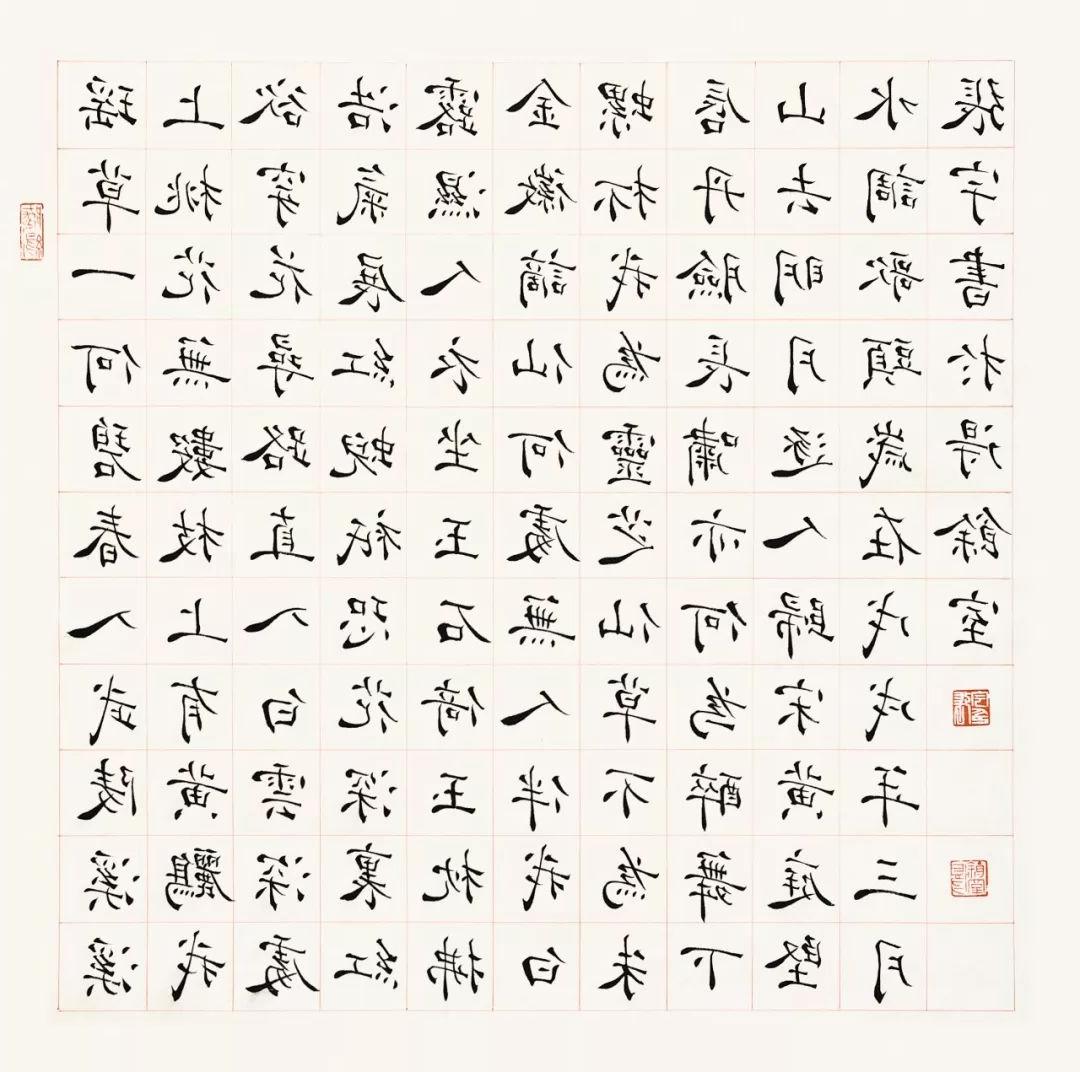 瑤草一何碧春入武陵溪溪
上桃花無數枝上有黃鸝我
欲穿花尋路直入白雲深處
浩氣展紅蜺祇恐花深裏紅
露濕人衣坐玉石倚玉枕拂
金徽謫仙何處無人伴我白
螺杯我為靈芝仙草不為朱
唇丹臉長嘯亦何為醉舞下
山去明月逐人歸宋黃庭堅
水調歌頭歲在戊戌年三月
張宇書於得餘室